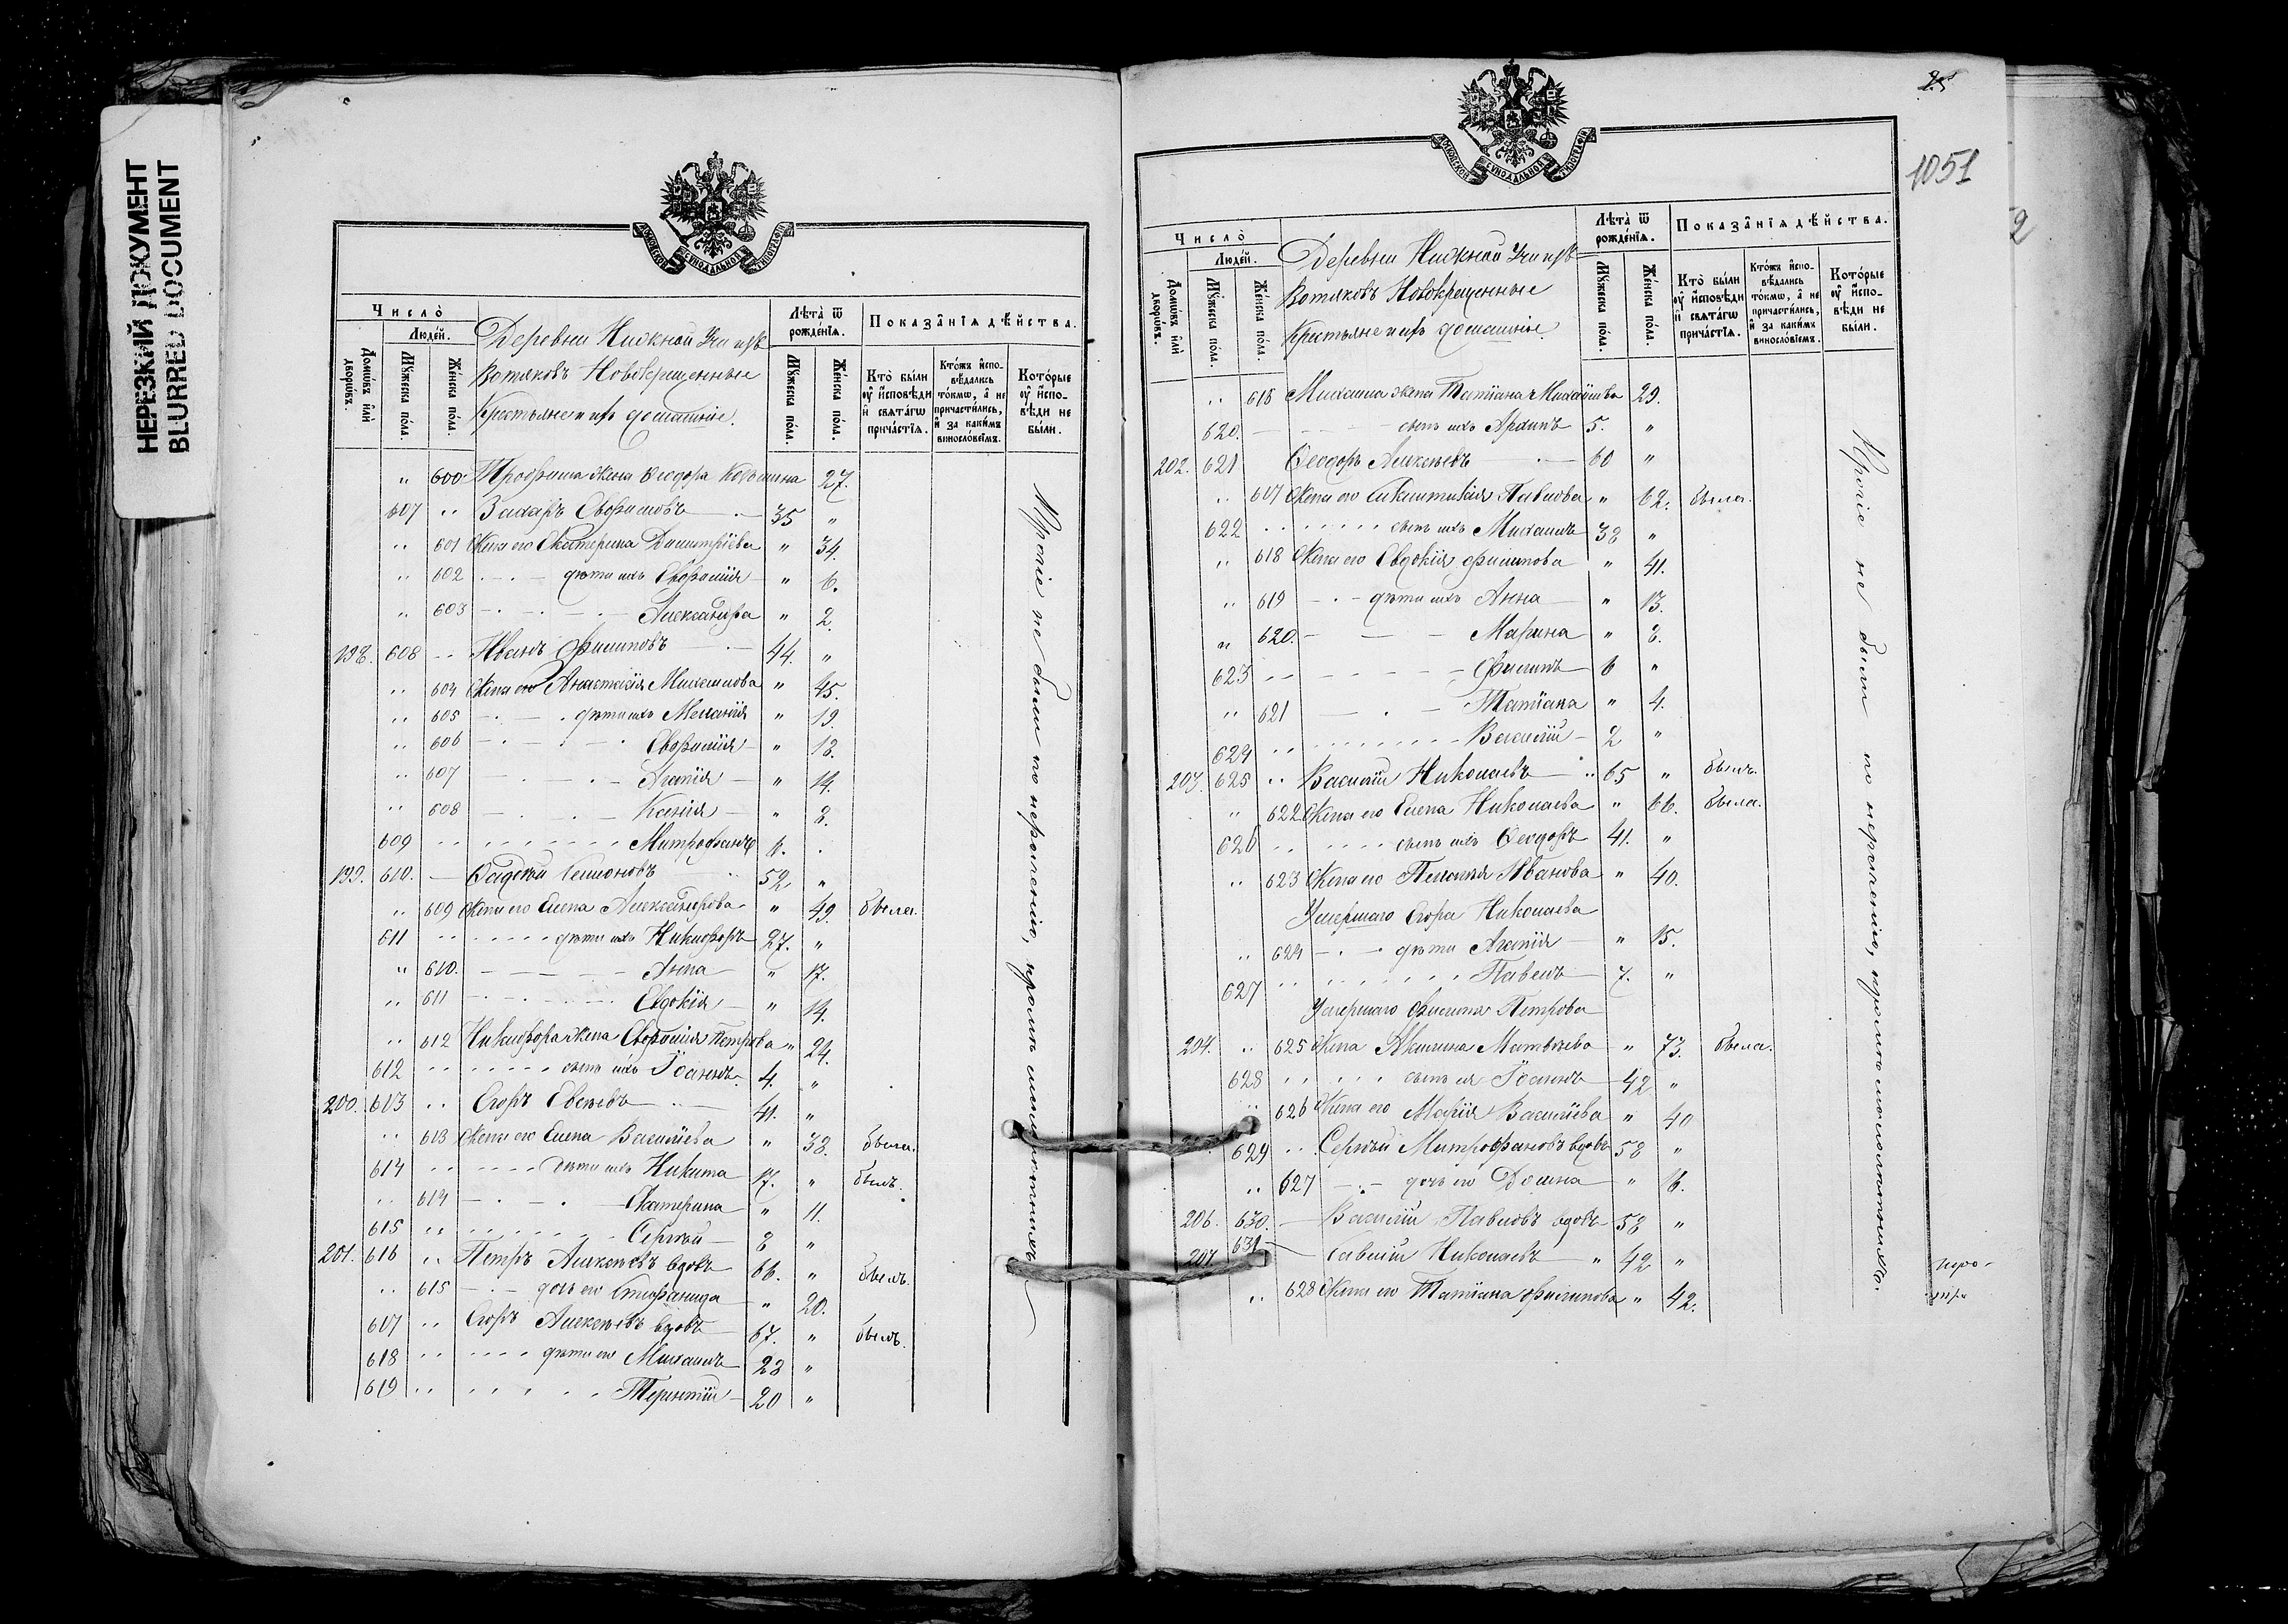 НЕРЕЗКИЙ ДОКУМЕНТ
BLURRED DOCUMENT
МОСКОВСКОЙ СѴНОДАЛЬНОЙ ТИПОГРАФІИ
Число
Людей.
Домѡвъ или дворѡвъ.
Мꙋжеска пола.
Женска пола.
Деревни Нижной Учи изъ
Вотяковъ Новокрещенные
Крестьяне и ихъ домашніе.
Лѣта ѿ рожденїѧ.
Мꙋжеска пола.
Женска пола.
Показанїѧ дѣйства.
Кто были оу исповѣди и свѧтагѡ причастїѧ.
Ктожъ исповѣдались токмѡ, а не причастились, и за какимъ винословїемъ.
Которые оу исповѣди не были.
" 600. Трофима жена Ѳеодора 27.
607 " Захаръ Евфимовъ 35 "
" 601 Жена его Екатерина Димитріева " 34.
" 602 дѣти ихъ Евфимія " 6.
" 603 Александра " 2.
198. 608 Иванъ Филиповъ 44. "
" 604 Жена его Анастасія Михаилова " 45.
" 605 дѣти ихъ Меланія " 19
" 606 Евфимія " 18.
" 607 Агапія " 14.
" 608 Ксенія " 8.
609 " Митрофанъ 6.
199. 610. Фадѣй Семеновъ 52 "
" 609 Жена его Елена Александрова " 49. была.
611 " дѣти ихъ Никифоръ 27. "
" 610. Анна " 17.
" 611 Евдокія " 14.
" 612 Никифора жена Евфимія Петрова " 24.
612 " сынъ ихъ Іоаннъ 4. "
200. 613 " Егоръ Евсѣевъ 41. "
" 613 Жена его Елена Василіева " 38. была.
614 " дѣти ихъ Никита 17. " былъ.
" 614 Екатерина " 11.
615 " Сергѣй 8 "
201. 616 " Петръ Алексѣевъ вдовъ 66. " былъ.
" 615 дочь его Стефанида " 20.
617 " Егоръ Алексѣевъ вдовъ 67. " былъ.
618 " дѣти его Михаилъ 28 "
619 " Терентій 20 "
Прочіе не были по нерачению, кромѣ малолѣтнихъ
1051
МОСКОВСКОЙ СѴНОДАЛЬНОЙ ТИПОГРАФІИ
Число
Людей.
Домѡвъ или дворѡвъ.
Мꙋжеска пола.
Женска пола.
Деревни Нижной Учи изъ
Вотяковъ Новокрещенные
Крестьяне и ихъ домашніе.
Лѣта ѿ рожденїѧ.
Мꙋжеска пола.
Женска пола.
Показанїѧ дѣйства.
Кто были оу исповѣди и свѧтагѡ причастїѧ.
Ктожъ исповѣдались токмѡ, а не причастились, и за какимъ винословїемъ.
Которые оу исповѣди не были.
" 616 Михаила жена Татіана 29.
620. сынъ ихъ Архипъ 5. "
202. 621 Ѳеодоръ Алексѣевъ 60 "
" 617 Жена его Павлова " 62. была.
622 сынъ ихъ Михаилъ 38 "
" 618 Жена его Евдокія Филипова " 41.
" 619 дѣти ихъ Анна " 13.
" 620. Марина " 8.
623 " Филипъ 6 "
" 621 Татіана " 4.
624 " Василій 2 "
203. 625 " Василій Николаевъ 65 " былъ.
" 622 Жена его Елена Николаева " 66. была.
626 " сынъ ихъ Ѳеодоръ 41. "
" 623 Жена его Пелагія Иванова " 40.
Умершаго Егора Николаева
" 624 дѣти Агапія " 15.
627 " Павелъ 7. "
Умершаго Филипа Петрова
204. " 625 Жена Акилина Матвѣева " 73. была.
628 " сынъ ея Іоаннъ 42 "
" 626 Жена его Марія Василіева " 40
629 " Сергѣй Митрофановъ вдовъ 58 "
" 627 дочь его Домна " 16.
206. 630. Василій Павловъ вдовъ 58 "
207. 631 Савелій Николаевъ " 42 "
" 628 Жена его Татіана Филипова " 42.
Прочіе не были по нерачению, кромѣ малолѣтнихъ.